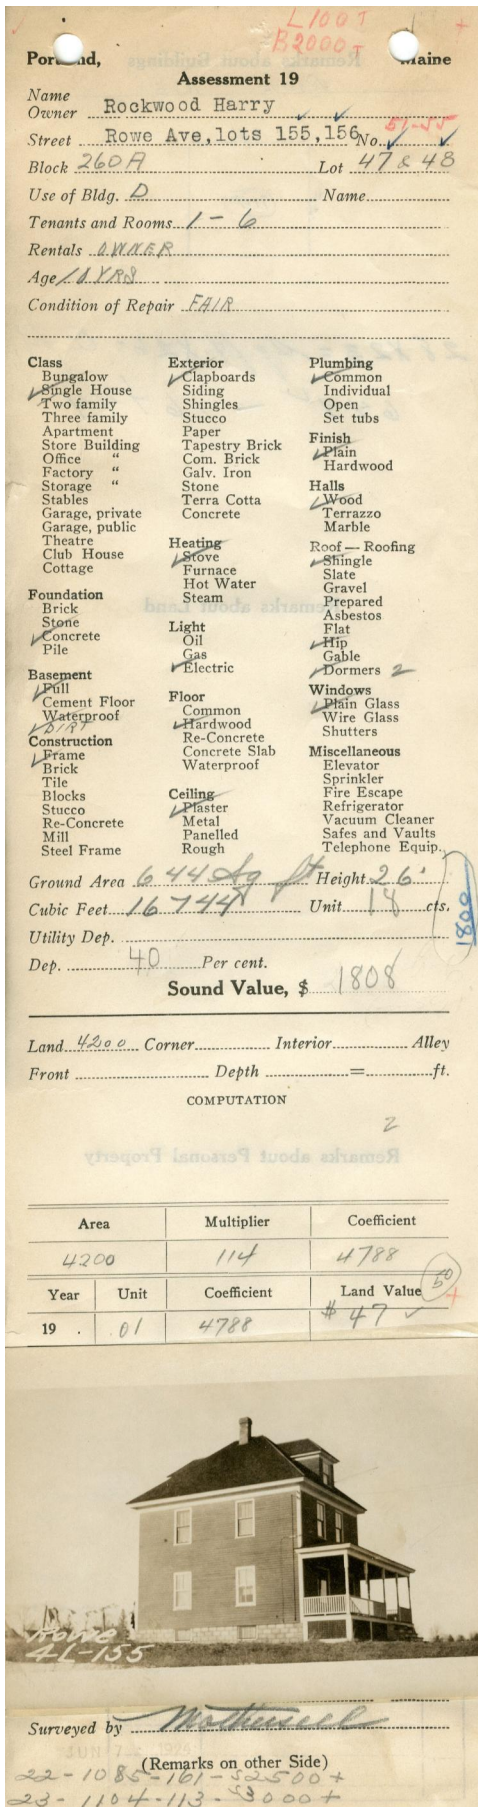 L100T
B2000T
Portland, Maine
Assessment 19
Name
Owner Rockwood Harry
Street Rowe Ave,lots 155,156 No. 51-55
Block 260A Lot 47 & 48
Use of Bldg. D Name
Tenants and Rooms 1 - 6
Rentals OWNER
Age 10 YRS
Condition of Repair FAIR
Class
Bungalow
Single House
Two family
Three family
Apartment
Store Building
Office "
Factory "
Storage "
Stables
Garage, private
Garage, public
Theatre
Club House
Cottage
Foundation
Brick
Stone
Concrete
Pile
Basement
Full
Cement Floor
Waterproof
DIRT
Construction
Frame
Brick
Tile
Blocks
Stucco
Re-Concrete
Mill
Steel Frame
Exterior
Clapboards
Siding
Shingles
Stucco
Paper
Tapestry Brick
Com. Brick
Galv. Iron
Stone
Terra Cotta
Concrete
Heating
Stove
Furnace
Hot Water
Steam
Light
Oil
Gas
Electric
Floor
Common
Hardwood
Re-Concrete
Concrete Slab
Waterproof
Ceiling
Plaster
Metal
Panelled
Rough
Plumbing
Common
Individual
Open
Set tubs
Finish
Plain
Hardwood
Halls
Wood
Terrazzo
Marble
Roof — Roofing
Shingle
Slate
Gravel
Prepared
Asbestos
Flat
Hip
Gable
Dormers 2
Windows
Plain Glass
Wire Glass
Shutters
Miscellaneous
Elevator
Sprinkler
Fire Escape
Refrigerator
Vacuum Cleaner
Safes and Vaults
Telephone Equip.
Ground Area 644 Sq ft Height 26'
Cubic Feet 16744 Unit 18 cts.
1800
Utility Dep.
Dep. 40 Per cent.
Sound Value, $ 1808
Land 4200 Corner Interior Alley
Front Depth = ft.
COMPUTATION
2
Area Multiplier Coefficient
4200 114 4788
Year Unit Coefficient Land Value 50
19 . 01 4788 $ 47
Rowe
4L-155
Surveyed by
JUN
(Remarks on other Side)
22-1085-161-$2500+
23-1104-113-$3000+